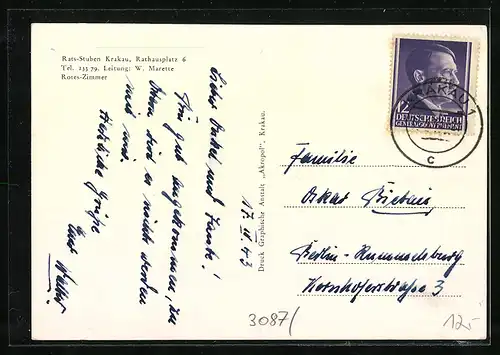 Rats-Stuben Krakau, Rathausplatz 6
Tel. 235 79. Leitung: W. Marette
Rotes-Zimmer
Lieber Onkel und Tante!
Bin gut angekommen, zu
wird es nicht werden
mit uns.
Herzliche Grüße
Euer Walter
17. 4. 43
Druck Graphische Anstalt „Akropol", Krakau.
KRAKAU 1
c
12
DEUTSCHES REICH
GENERALGOUVERNEMENT
Familie
Oskar
Berlin-Rummelsburg
3
3087/
12,-